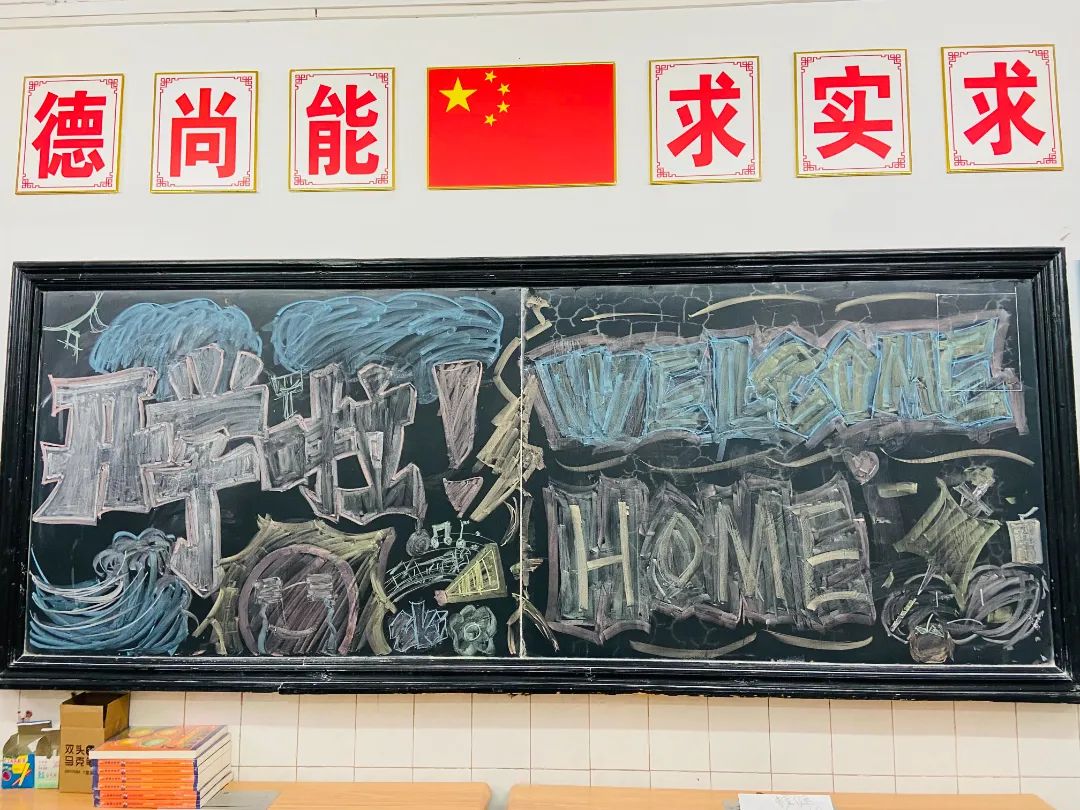 德尚能 求实求
开学啦！
WELCOME
HOME
双头
马克笔